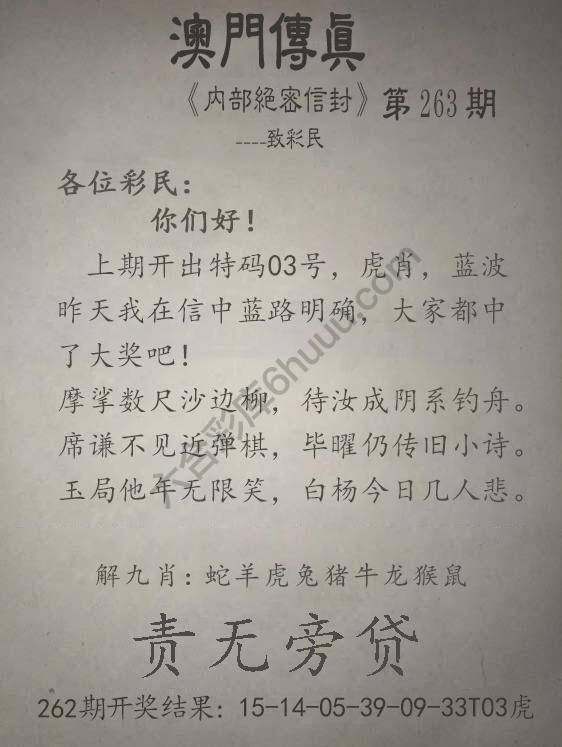 澳門傳眞
《内部絕密信封》第263期
----致彩民
各位彩民：
你们好！
上期开出特码03号，虎肖，蓝波
昨天我在信中蓝路明确，大家都中
了大奖吧！
摩挲数尺沙边柳，待汝成阴系钓舟。
席谦不见近弹棋，毕曜仍传旧小诗。
玉局他年无限笑，白杨今日几人悲。
解九肖：蛇羊虎兔猪牛龙猴鼠
责无旁贷
262期开奖结果：15-14-05-39-09-33T03虎
六合彩库6huuu.com